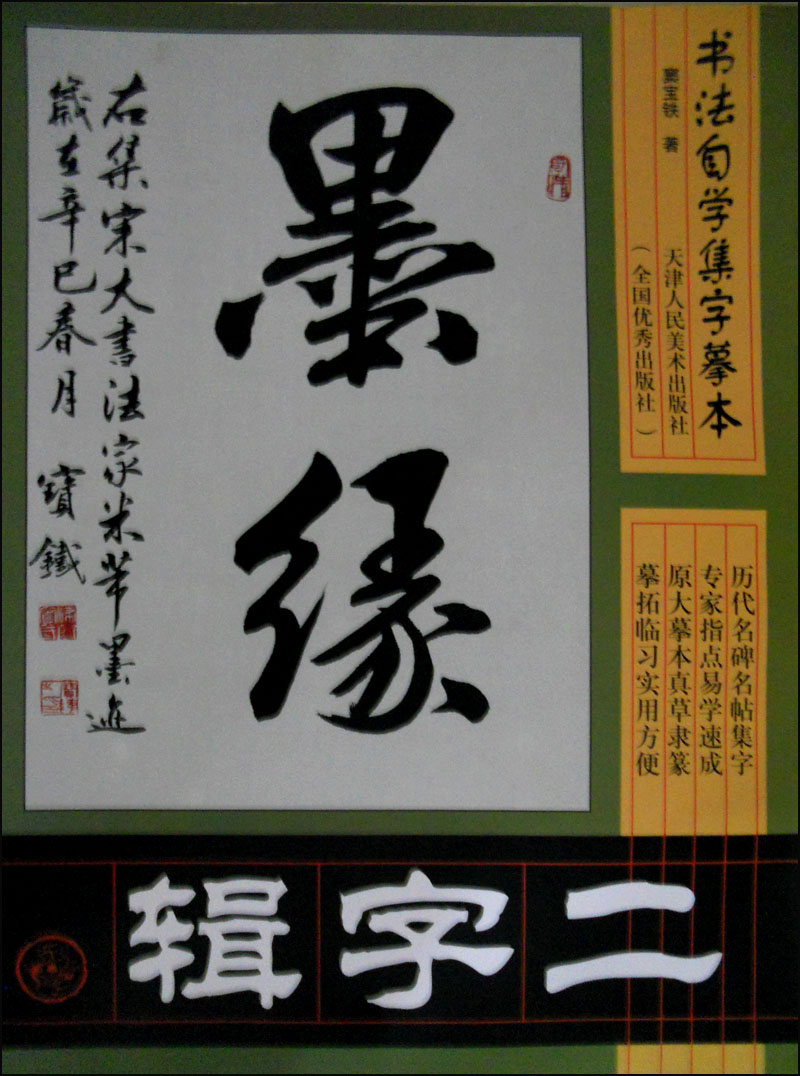 书法自学集字摹本
窦宝铁 著
天津人民美术出版社
（全国优秀出版社）
历代名碑名帖集字
专家指点易学速成
原大摹本真草隶篆
摹拓临习实用方便
墨缘
右集宋大書法家米芾墨迹
歲在辛巳春月 寶鐵
二字辑